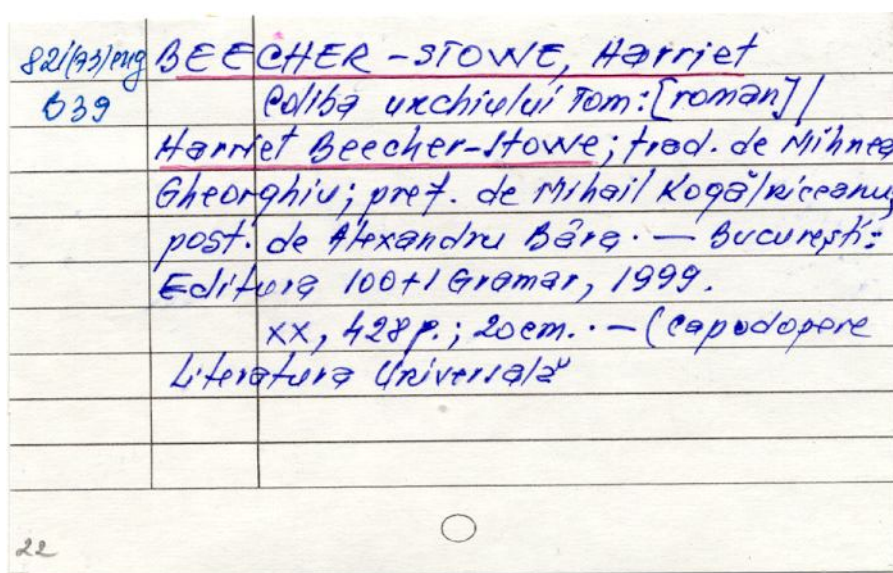 821(73)eng BEECHER-STOWE, Harriet
B39 Coliba unchiului Tom: [roman] /
Harriet Beecher-Stowe; trad. de Mihnea
Gheorghiu; pref. de Mihail Kogălniceanu;
post. de Alexandru Băra. — Bucureşti:
Editura 100+1 Gramar, 1999.
XX, 428 p.; 20 cm. . — (Capodopere
Literatura Universală
22